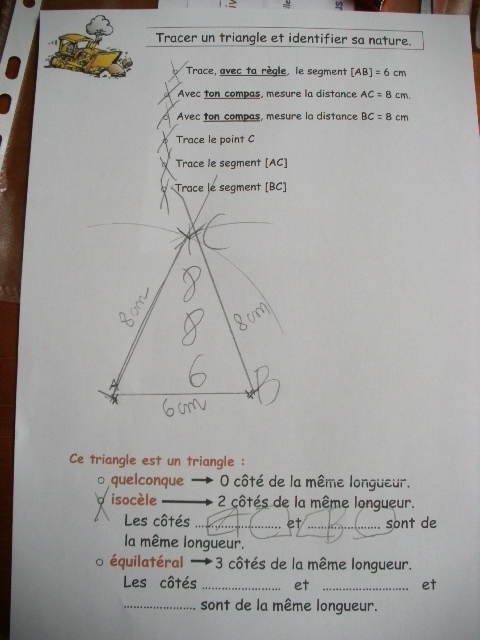 Tracer un triangle et identifier sa nature.
Trace, avec ta règle, le segment [AB] = 6 cm
Avec ton compas, mesure la distance AC = 8 cm.
Avec ton compas, mesure la distance BC = 8 cm
Trace le point C
Trace le segment [AC]
Trace le segment [BC]
C
8
8cm
8cm
8
6
A
B
6cm
Ce triangle est un triangle :
quelconque → 0 côté de la même longueur.
isocèle → 2 côtés de la même longueur.
Les côtés ........ AC ........ et ........ BC ........ sont de
la même longueur.
équilatéral → 3 côtés de la même longueur.
Les côtés ........................ et ........................ et
........................ sont de la même longueur.